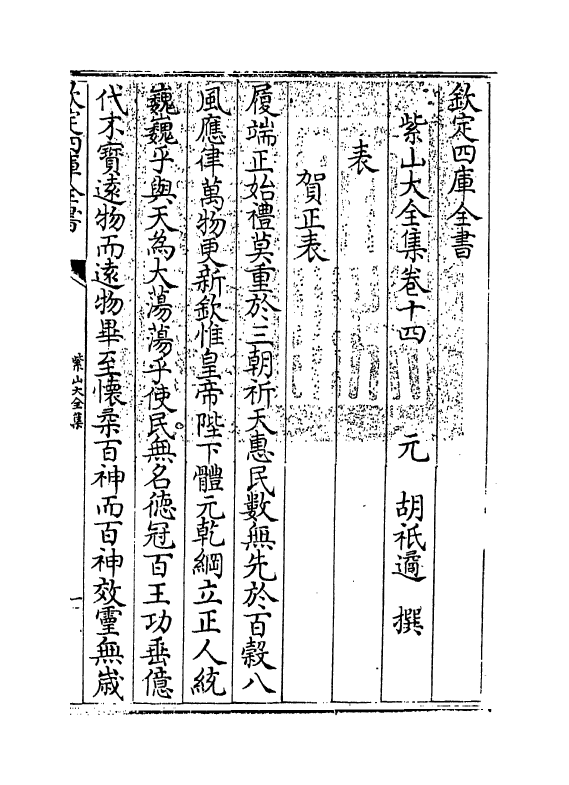 欽定四庫全書
紫山大全集卷十四
元 胡祗遹 撰
表
賀正表
履端正始禮莫重於三朝祈天惠民數無先於百穀八
風應律萬物更新欽惟皇帝陛下體元乾綱立正人統
巍巍乎與天為大蕩蕩乎使民無名徳冠百王功垂億
代不寳逺物而逺物畢至懷柔百神而百神效靈無歳
欽定四庫全書
紫山大全集
一